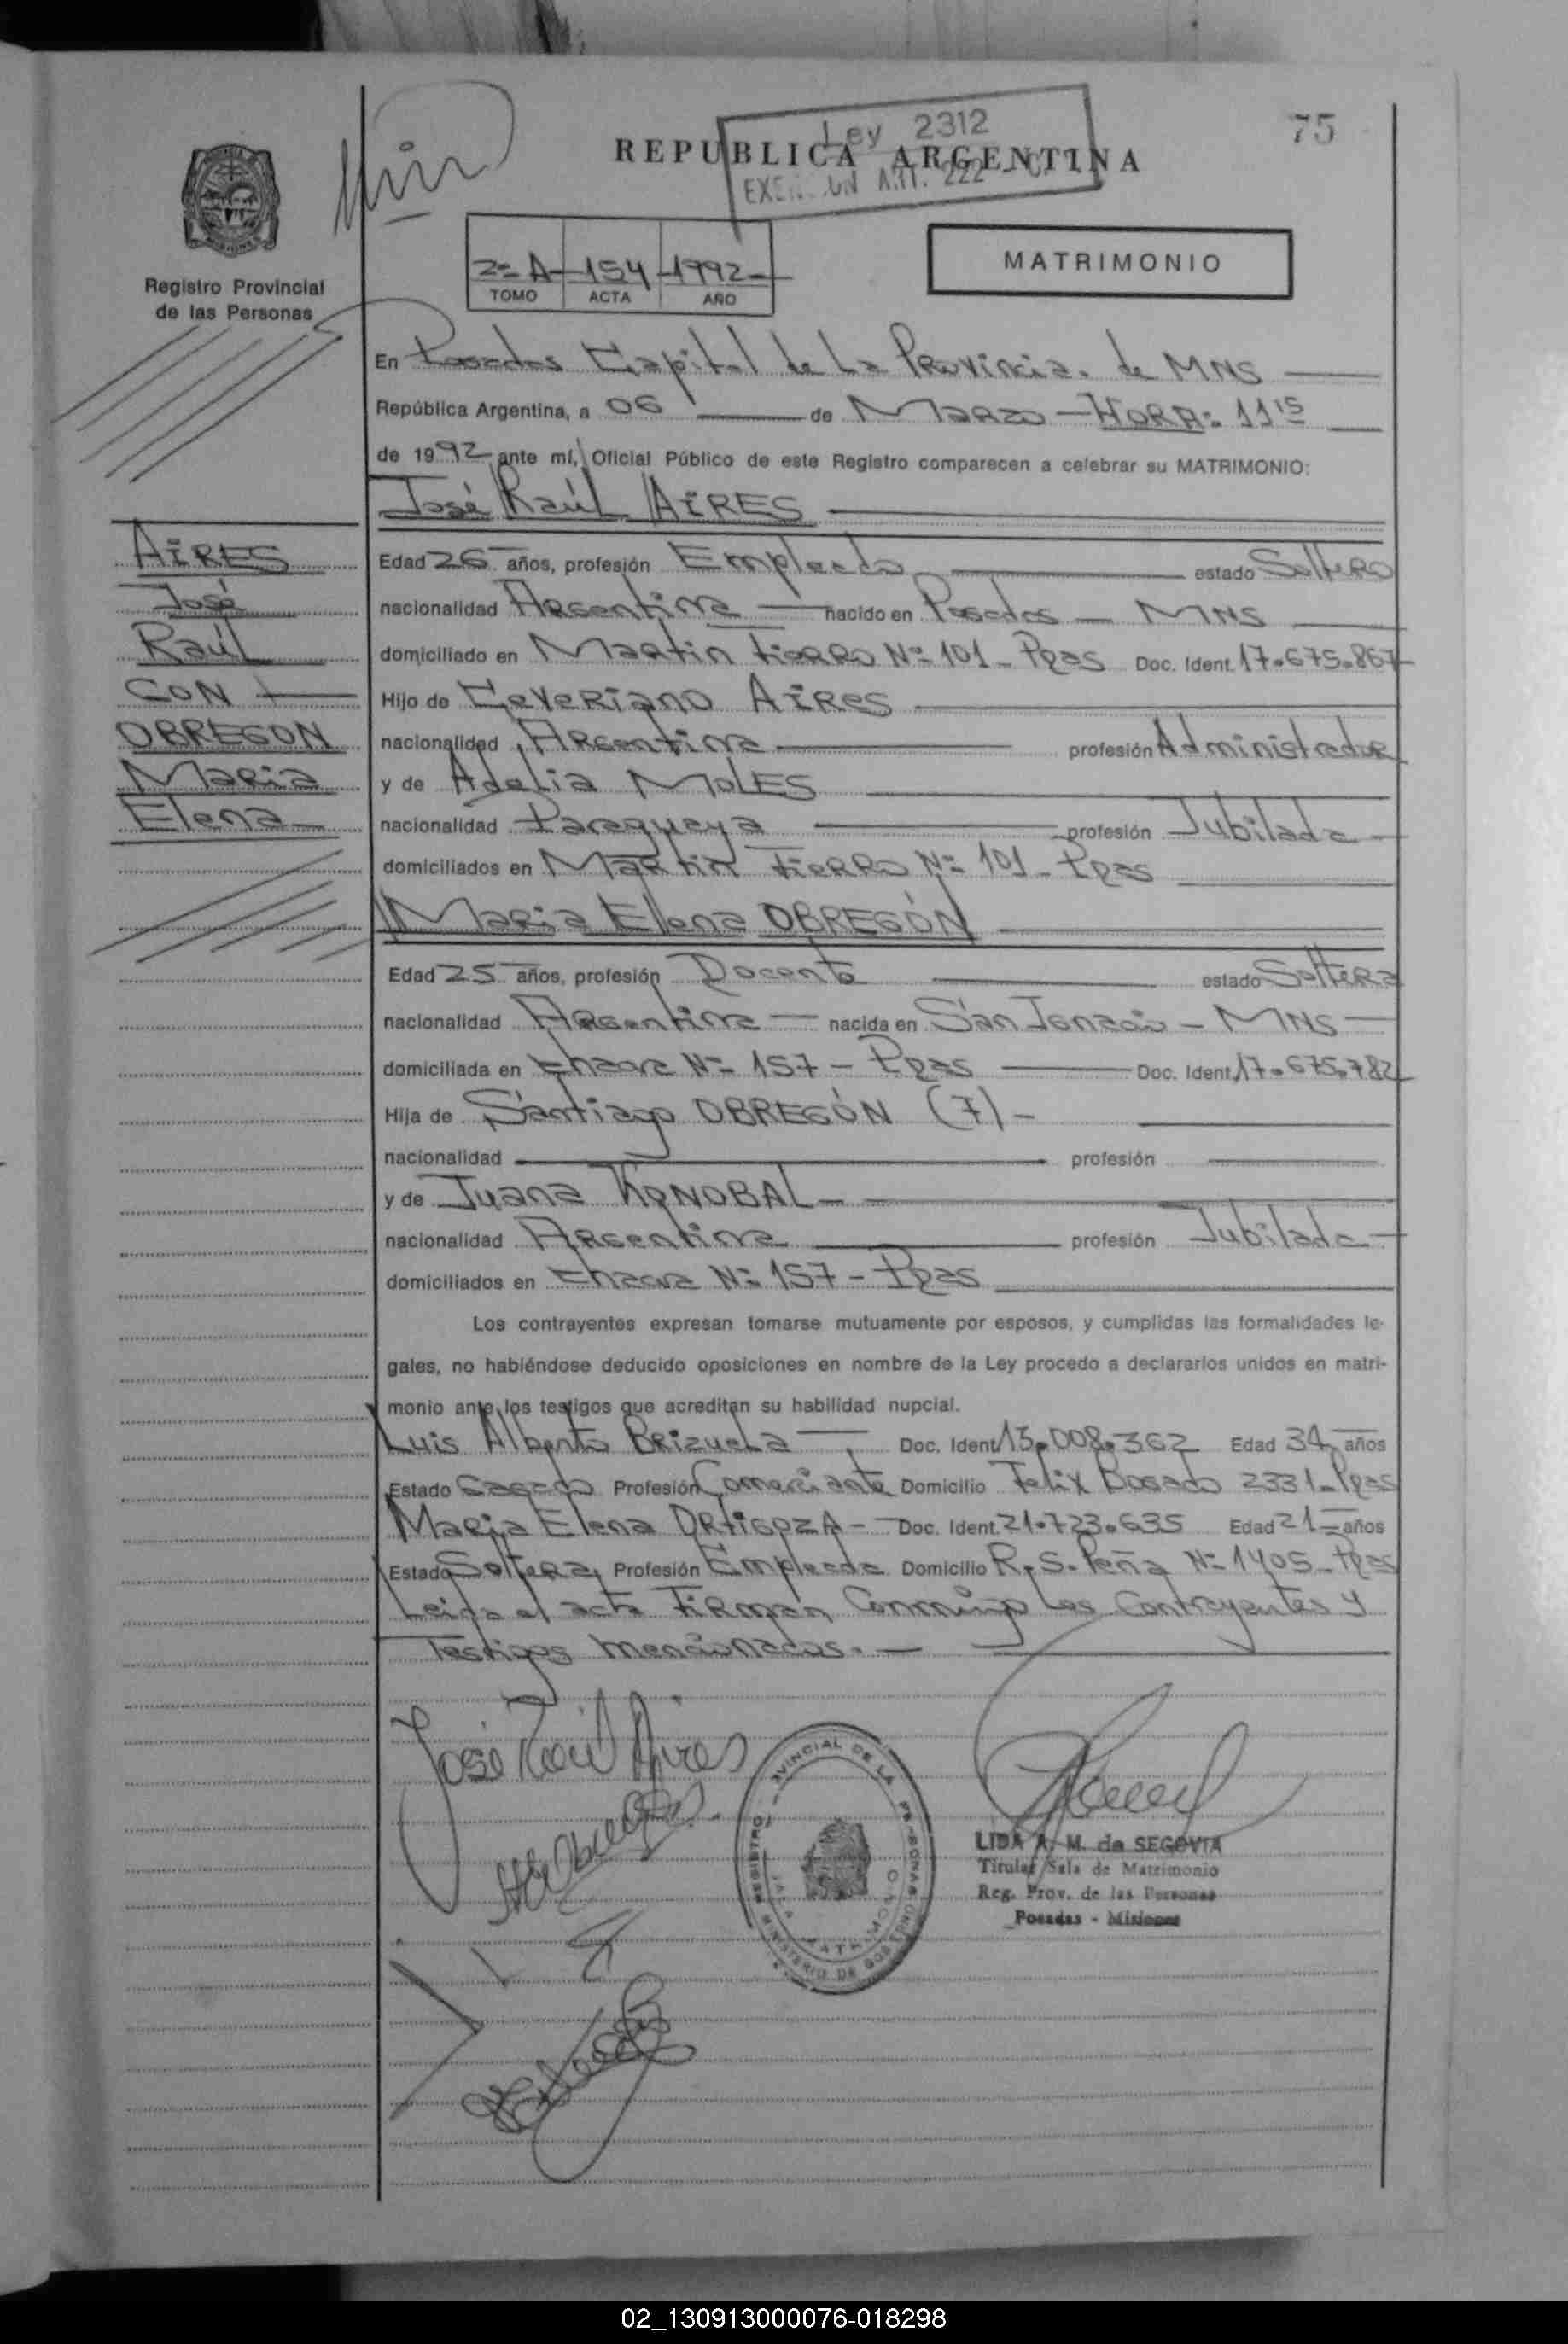 75
Ley 2312
REPUBLICA ARGENTINA
ART. 222
2º A 154 1992
TOMO ACTA AÑO
MATRIMONIO
Registro Provincial
de las Personas
En Posadas Capital de La Provincia de MNS
República Argentina, a 06 de Marzo - HORA: 11 15
de 1992 ante mí, Oficial Público de este Registro comparecen a celebrar su MATRIMONIO:
José Raúl AIRES
AIRES
José
Raúl
CON
OBREGON
Maria
Elena
Edad 26 años, profesión Empleado estado Soltero
nacionalidad Argentina nacido en Posadas - MNS
domiciliado en Martin Fierro Nº 101 - Pdas Doc. Ident. 17.675.867
Hijo de Ceveriano Aires
nacionalidad Argentina profesión Administrador
y de Adelia MOLES
nacionalidad Paraguaya profesión Jubilada
domiciliados en Martin Fierro Nº 101 - Pdas
Maria Elena OBREGÓN
Edad 25 años, profesión Docente estado Soltera
nacionalidad Argentina nacida en San Ignacio - MNS
domiciliada en Chacra Nº 157 - Pdas Doc. Ident. 17.675.782
Hija de Santiago OBREGÓN (7) -
nacionalidad profesión
y de Juana KONOBAL
nacionalidad Argentina profesión Jubilada
domiciliados en Chacra Nº 157 - Pdas
Los contrayentes expresan tomarse mutuamente por esposos, y cumplidas las formalidades le-
gales, no habiéndose deducido oposiciones en nombre de la Ley procedo a declararlos unidos en matri-
monio ante los testigos que acreditan su habilidad nupcial.
Luis Alberto Brizuela Doc. Ident. 13.008.362 Edad 34 años
Estado Casado Profesión Comerciante Domicilio Felix Bogado 2331 - Pdas
Maria Elena ORTIGOZA - Doc. Ident. 21.723.635 Edad 21 años
Estado Soltera Profesión Empleada Domicilio R. S. Peña Nº 1405 - Pdas
Leida el acta Firman Conmigo Los Contrayentes y
Testigos mencionados.
José Raúl Aires
REGISTRO PROVINCIAL DE LA PERSONAS
SALA MATRIMONIO
MINISTERIO DE GOBIERNO
LIDA A. M. de SEGOVIA
Titular Sala de Matrimonio
Reg. Prov. de las Personas
Posadas - Misiones
02_130913000076-018298